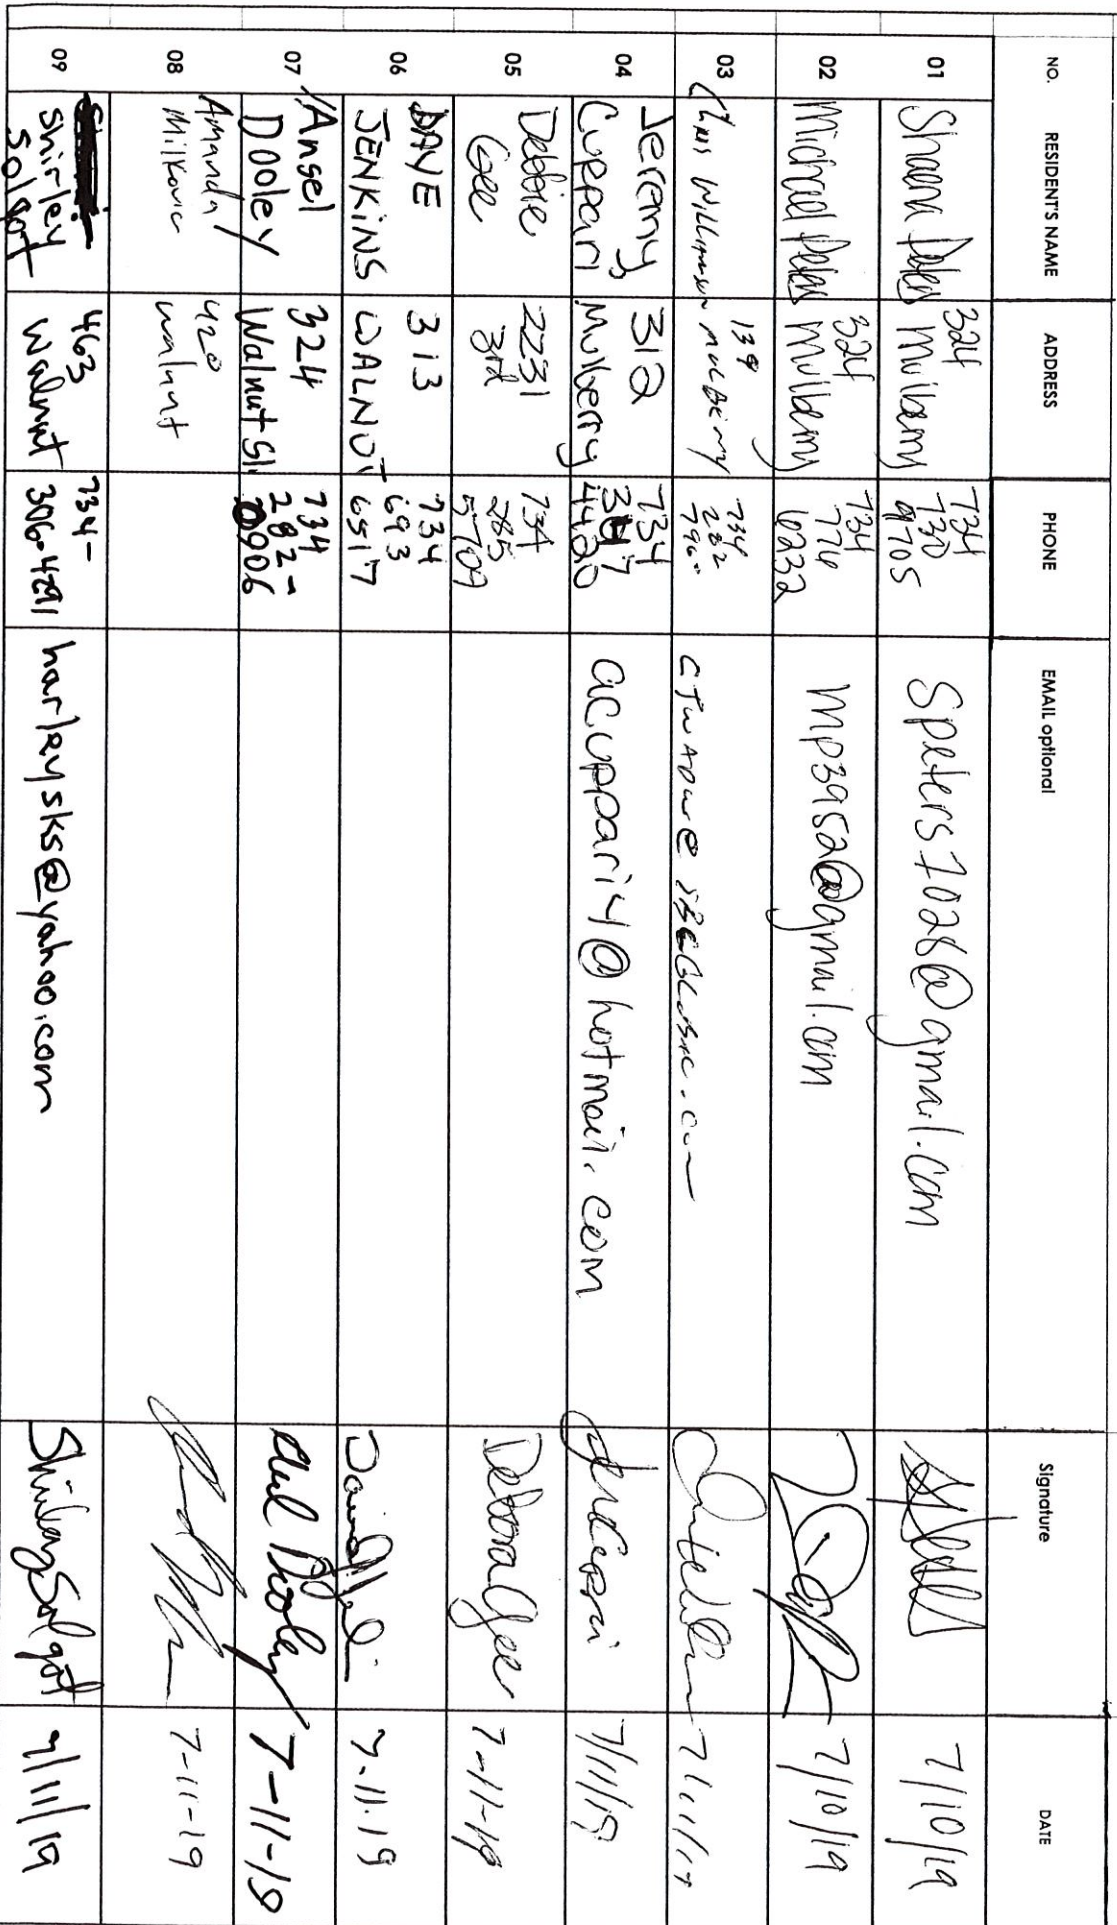 NO.
RESIDENT'S NAME
ADDRESS
PHONE
EMAIL optional
Signature
DATE
01
Shaena Peters
324
Mulberry
734
730
9705
Speters7028@gmail.com
7/10/19
02
Michael Peters
324
Mulberry
734
776
6232
mp3952@gmail.com
7/10/19
03
Chris
139
Mulberry
734
282-
04
Jeremy
Cuppari
312
Mulberry
734
4420
accuppari4@hotmail.com
7/11/19
05
Debbie
Gee
2231
3rd
734
285
5709
Deborah Gee
7-11-19
06
DAVE
JENKINS
313
WALNUT
734
693
6517
7-11-19
07
Ansel
Dooley
324
Walnut St.
734
282-
0906
Dooley
7-11-19
08
Amanda
Milkovic
420
walnut
7-11-19
09
Shirley
Solgot
463
Walnut
734-
306-4291
harleysks@yahoo.com
Shirley Solgot
7/11/19